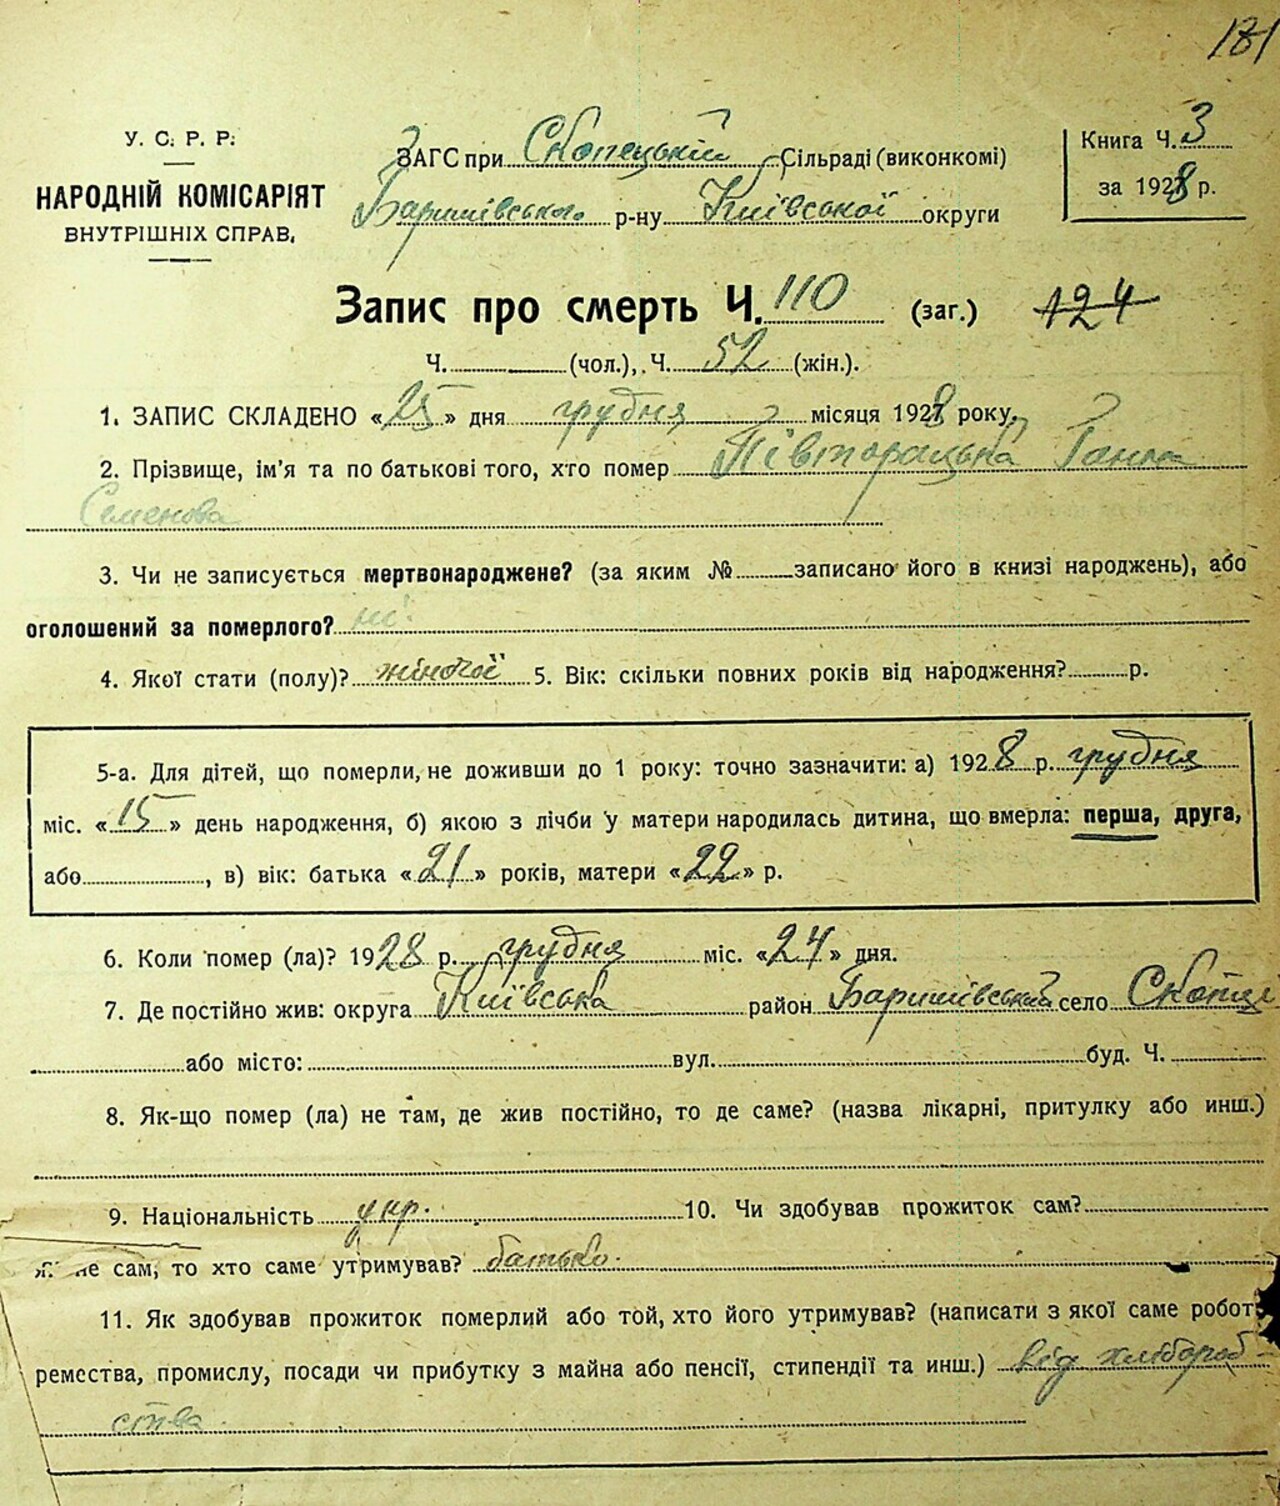 181
У. С. Р. Р.
НАРОДНІЙ КОМІСАРІЯТ
ВНУТРІШНІХ СПРАВ.
ЗАГС при Скопецькій Сільраді (виконкомі)
Баришівського р-ну Київської округи
Книга Ч. 3
за 1928 р.
Запис про смерть Ч. 110 (заг.) 124
Ч. (чол.), Ч. 52 (жін.).
1. ЗАПИС СКЛАДЕНО «25» дня грудня місяця 1928 року.
2. Прізвище, ім'я та по батькові того, хто помер Півторацька Ганна
Семенова
3. Чи не записується мертвонароджене? (за яким № записано його в книзі народжень), або
оголошений за померлого? ні.
4. Якої стати (полу)? жіночої 5. Вік: скільки повних років від народження? р.
5-а. Для дітей, що померли, не доживши до 1 року: точно зазначити: а) 1928 р. грудня
міс. «15» день народження, б) якою з лічби у матери народилась дитина, що вмерла: перша, друга,
або , в) вік: батька «21» років, матери «22» р.
6. Коли помер (ла)? 1928 р. грудня міс. «24» дня.
7. Де постійно жив: округа Київська район Баришівський село Скопці
або місто: вул. буд. Ч.
8. Як-що помер (ла) не там, де жив постійно, то де саме? (назва лікарні, притулку або инш.)
9. Національність укр. 10. Чи здобував прожиток сам?
не сам, то хто саме утримував? батько.
11. Як здобував прожиток померлий або той, хто його утримував? (написати з якої саме робот
ремества, промислу, посади чи прибутку з майна або пенсії, стипендії та инш.) від хлібороб-
ства.